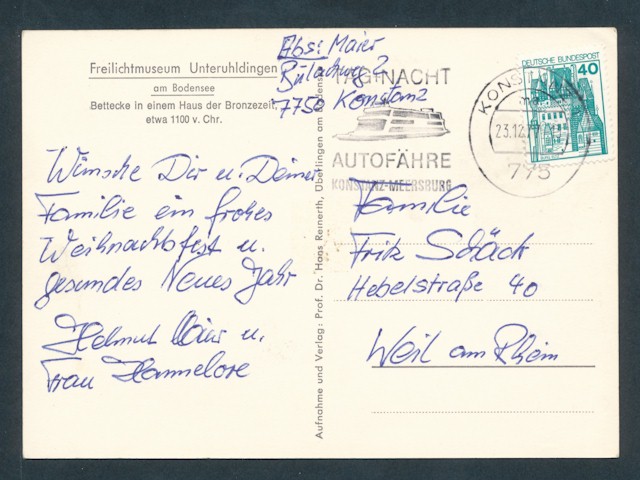 Freilichtmuseum Unteruhldingen
am Bodensee
Bettecke in einem Haus der Bronzezeit,
etwa 1100 v. Chr.
Wünsche Dir u. Deiner
Familie ein frohes
Weihnachtsfest u.
gesundes Neues Jahr
Helmut Maier u.
Frau Hannelore
Aufnahme und Verlag: Prof. Dr. Hans Reinerth, Überlingen am Bodensee
Abs: Maier
2
7750 Konstanz
TAG NACHT
AUTOFÄHRE
KONSTANZ-MEERSBURG
KONSTANZ
23.12.
775
DEUTSCHE BUNDESPOST
40
Familie
Fritz Schäck
Hebelstraße 40
Weil am Rhein